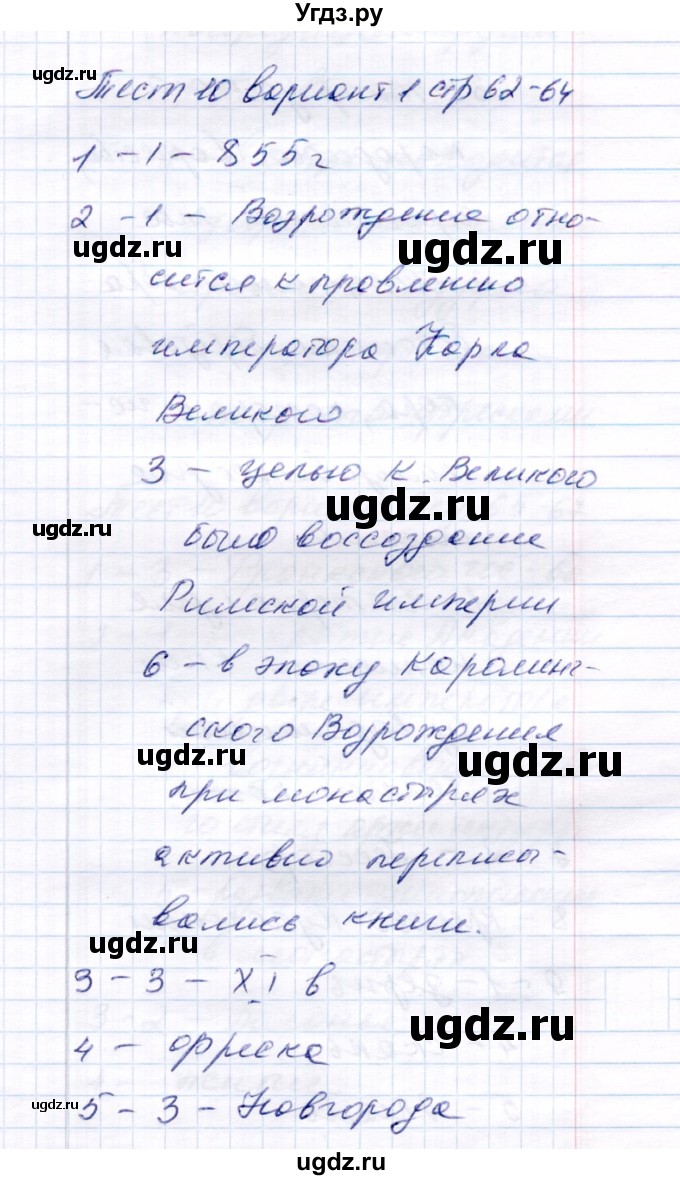 Угдз.ру
ugdz.ru
Тест 10 вариант 1 стр 62-64
1 - 1 - 855г
2 - 1 - Возрождение отно-
ugdz.ru ugdz.ru
сится к правлению
императора Карла
Великого
3 - целью К. Великого
ugdz.ru
ugdz.ru
было воссоздание
Римской империи
6 - в эпоху Каролинг-
ского Возрождения
ugdz.ru ugdz.ru
при монастырях
активно переписы-
вались книги.
ugdz.ru
3 - 3 - XI в
ugdz.ru
4 - фреска
ugdz.ru 5 - 3 - Новгорода
ugdz.ru